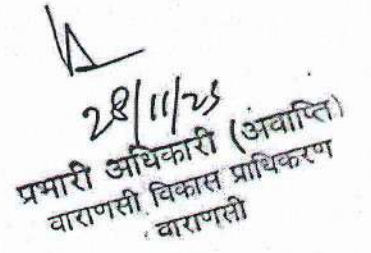 28/11/25
प्रभारी अधिकारी (अवाप्ति)
वाराणसी विकास प्राधिकरण
वाराणसी